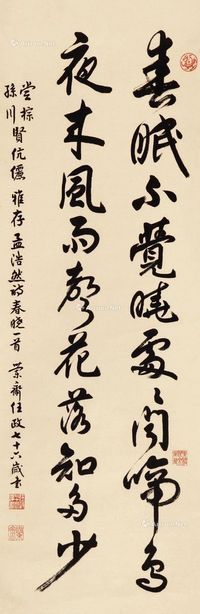 春眠不覺曉處〻聞啼鳥
夜来風雨聲花落知多少
棠棕
孫川賢伉儷雅存孟浩然詩春曉一首 蘭齋任政七十六歲書